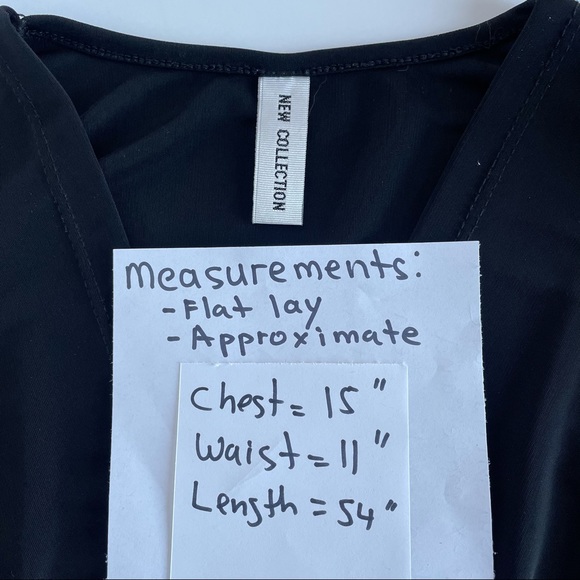 NEW COLLECTION
Measurements:
- Flat lay
- Approximate
Chest = 15"
Waist = 11"
Length = 54"